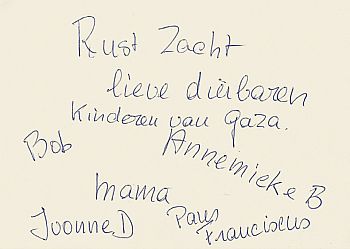 Rust Zacht
lieve dierbaren
Kinderen van Gaza.
Bob
Annemieke B
Mama
Yvonne D
Paus
Franciscus